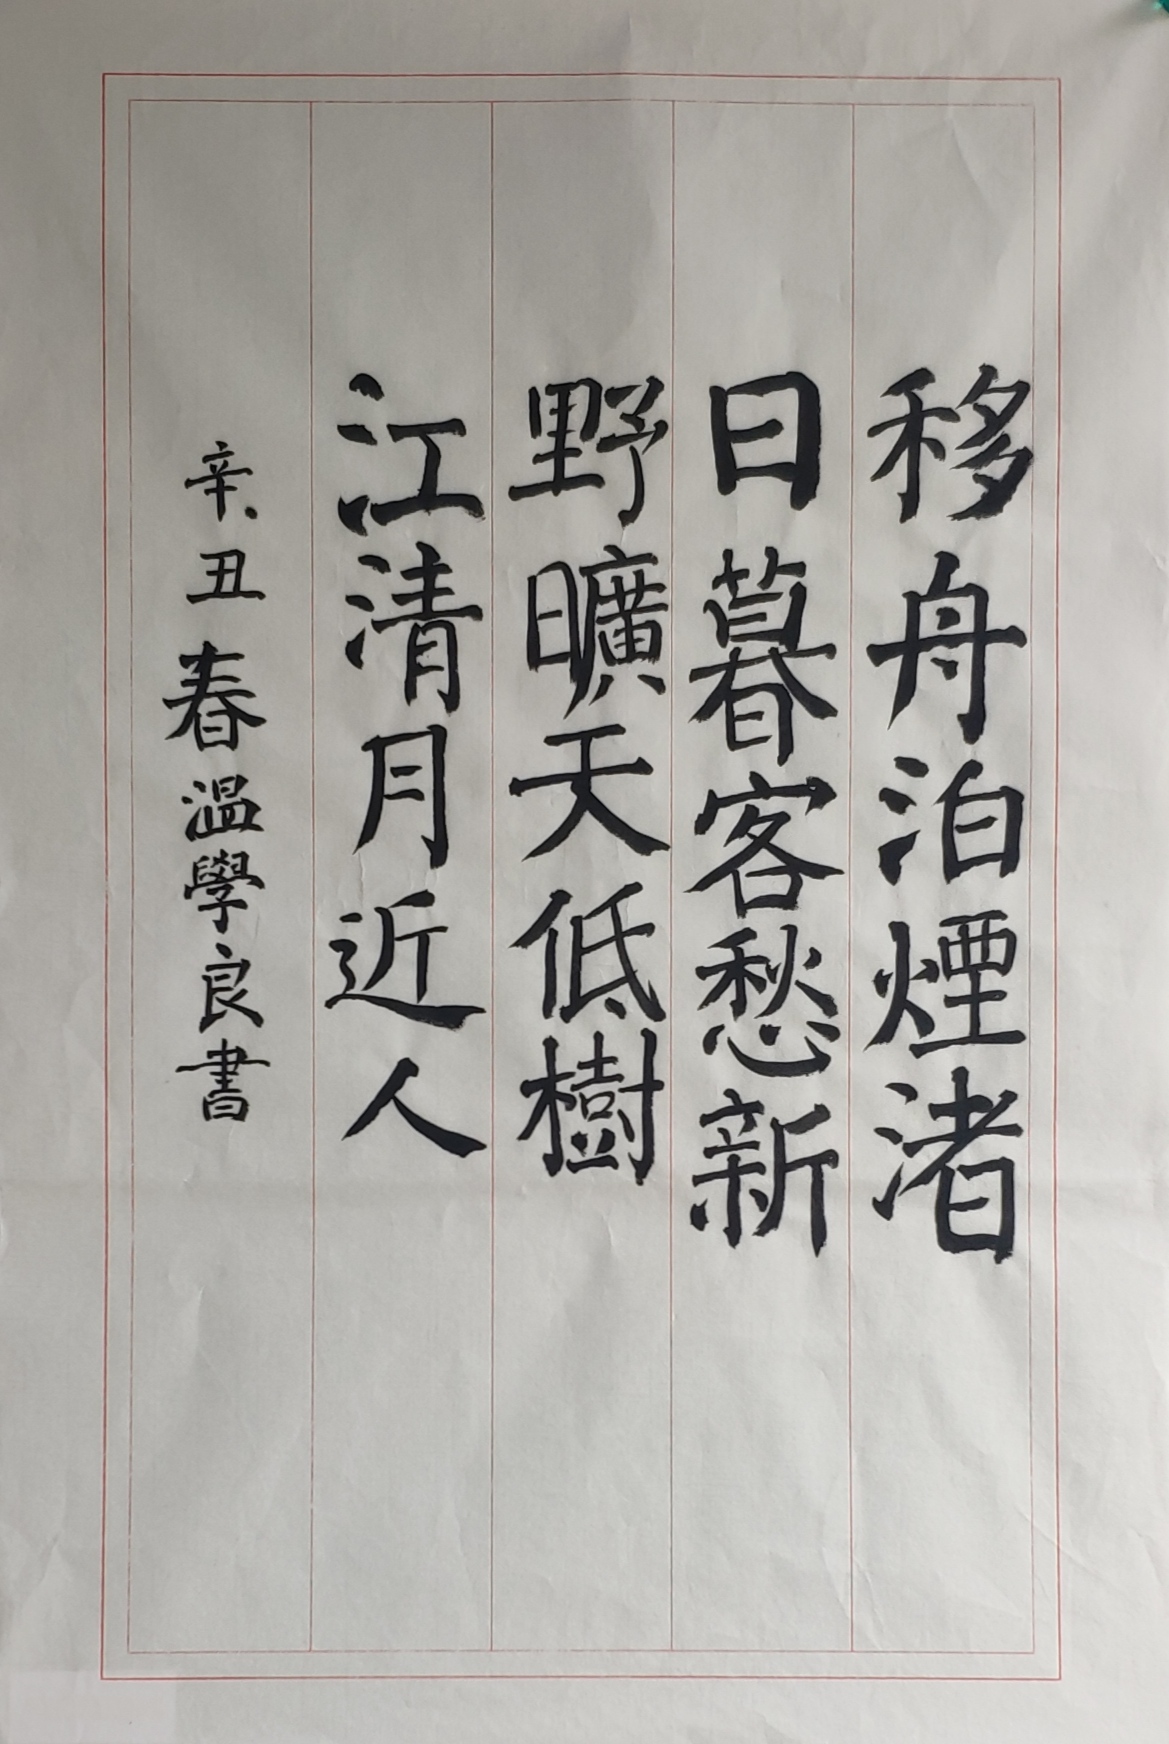 移舟泊煙渚
日暮客愁新
野曠天低樹
江清月近人
辛丑春溫學良書